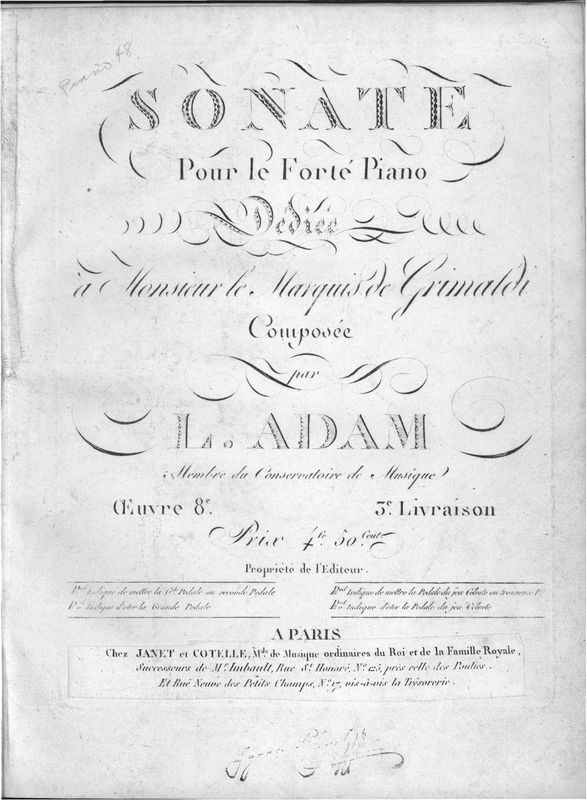 Piano 48
SONATE
Pour le Forté Piano
Dédiée
à Monsieur le Marquis de Grimaldi
Composée
par
L. ADAM
(Membre du Conservatoire de Musique)
Œuvre 8e. 3e. Livraison
Prix 4fr. 50 Cent.
Propriété de l'Editeur.
Indique de mettre la Gde. Pedale ou seconde Pedale
Indique d'oter la Grande Pedale
Indique de mettre la Pedale du jeu Céleste ou troisieme P.
Indique d'oter la Pedale du jeu Céleste
A PARIS
Chez JANET et COTELLE, Mds. de Musique ordinaires du Roi et de la Famille Royale,
Successeurs de Mr. Imbault, Rue St. Honoré, No. 125, près celle des Poulies.
Et Rue Neuve des Petits Champs, No. 17, vis-à-vis la Trésorerie.